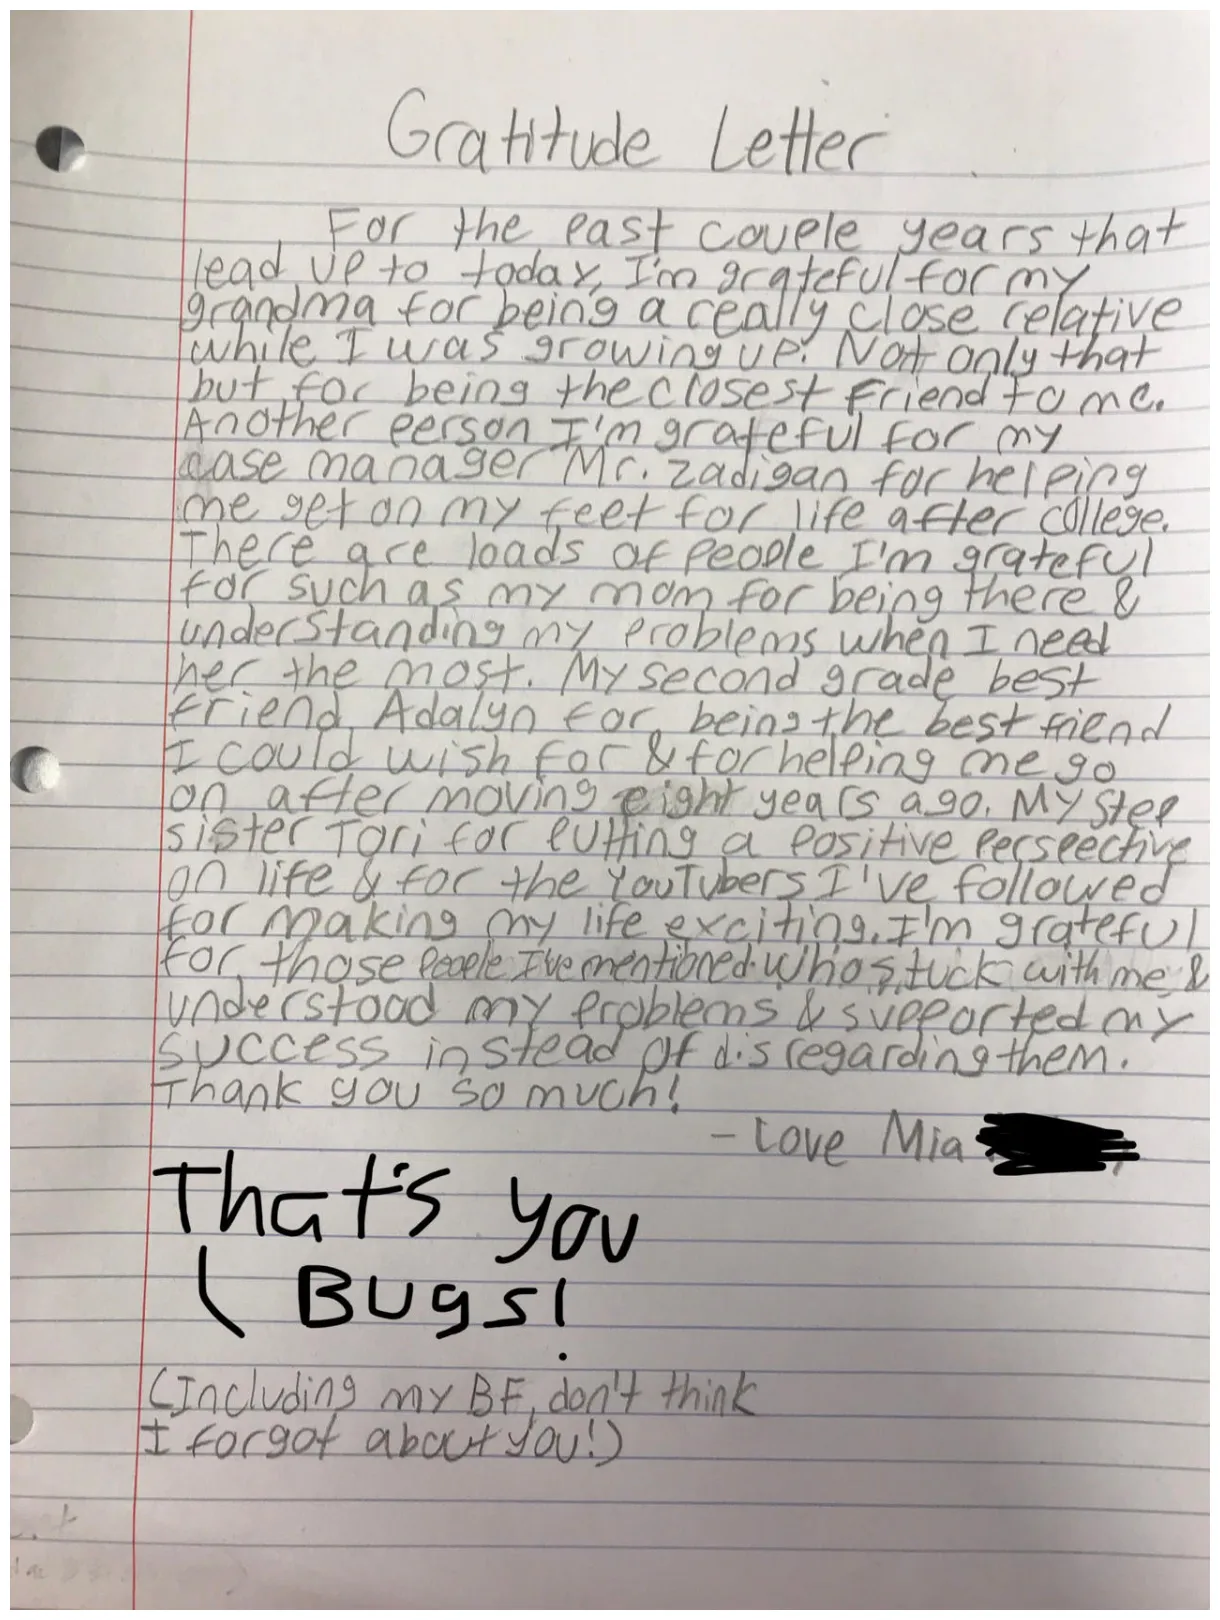 Gratitude Letter
For the past couple years that
lead up to today, I'm grateful for my
grandma for being a really close relative
while I was growing up. Not only that
but for being the closest friend to me.
Another person I'm grateful for my
case manager Mr. Zadigan for helping
me get on my feet for life after college.
There are loads of people I'm grateful
for such as my mom for being there &
understanding my problems when I need
her the most. My second grade best
friend, Adalyn for being the best friend
I could wish for & for helping me go
on after moving eight years ago. My step
sister Tori for putting a positive perspective
on life & for the YouTubers I've followed
for making my life exciting. I'm grateful
for those people I've mentioned who stuck with me &
understood my problems & supported my
success instead of disregarding them.
Thank you so much!
- Love Mia
That's you
Bugs!
(Including my BF, don't think
I forgot about you!)